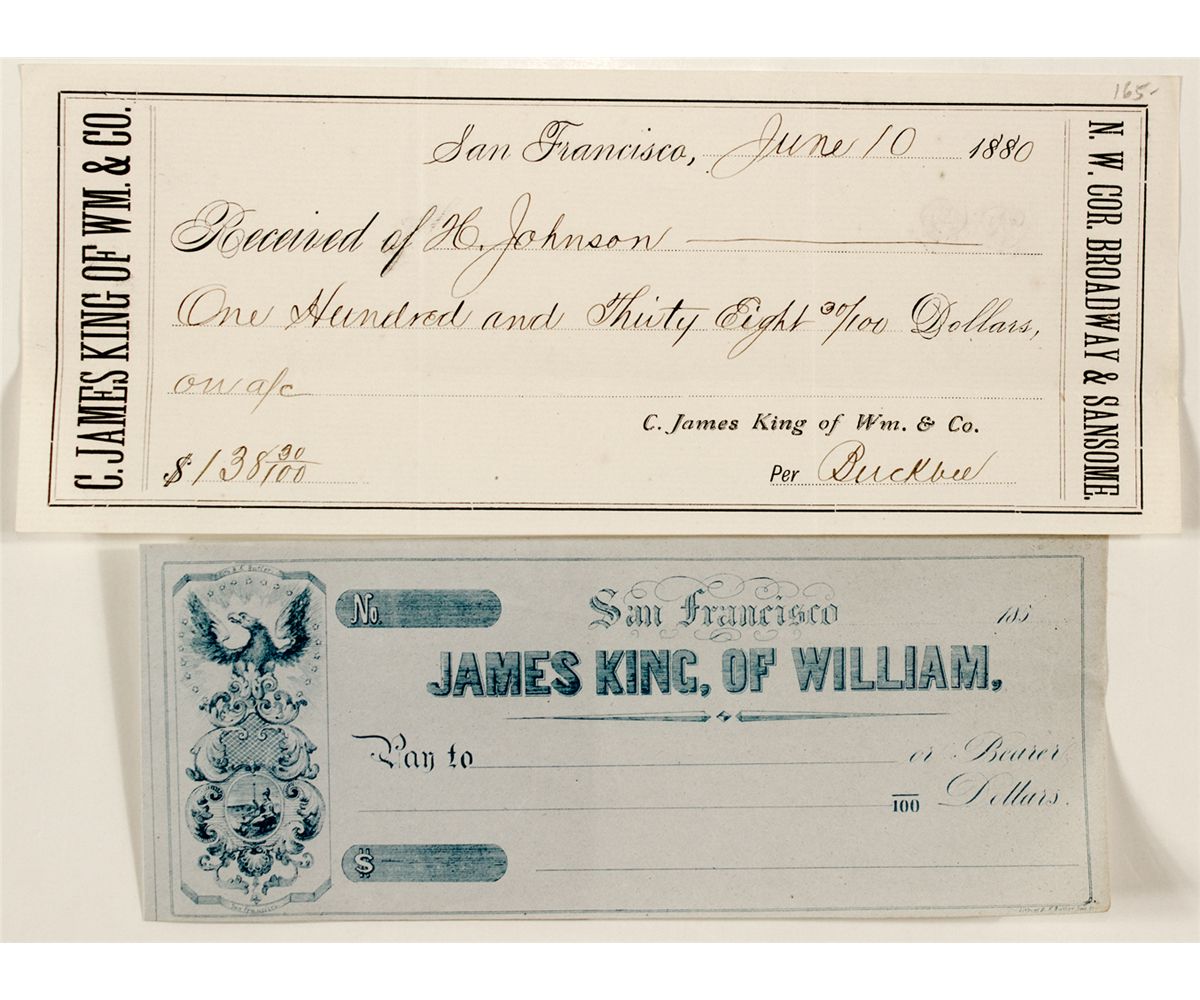 165-
C. JAMES KING OF WM. & CO.
San Francisco, June 10 1880
Received of H. Johnson
One Hundred and Thirty Eight 30/100 Dollars,
on a/c
C. James King of Wm. & Co.
$138 30/100
Per Buckbee
N. W. COR. BROADWAY & SANSOME.
No.
San Francisco 185
JAMES KING, OF WILLIAM,
Pay to or Bearer
/100 Dollars.
$
San Francisco